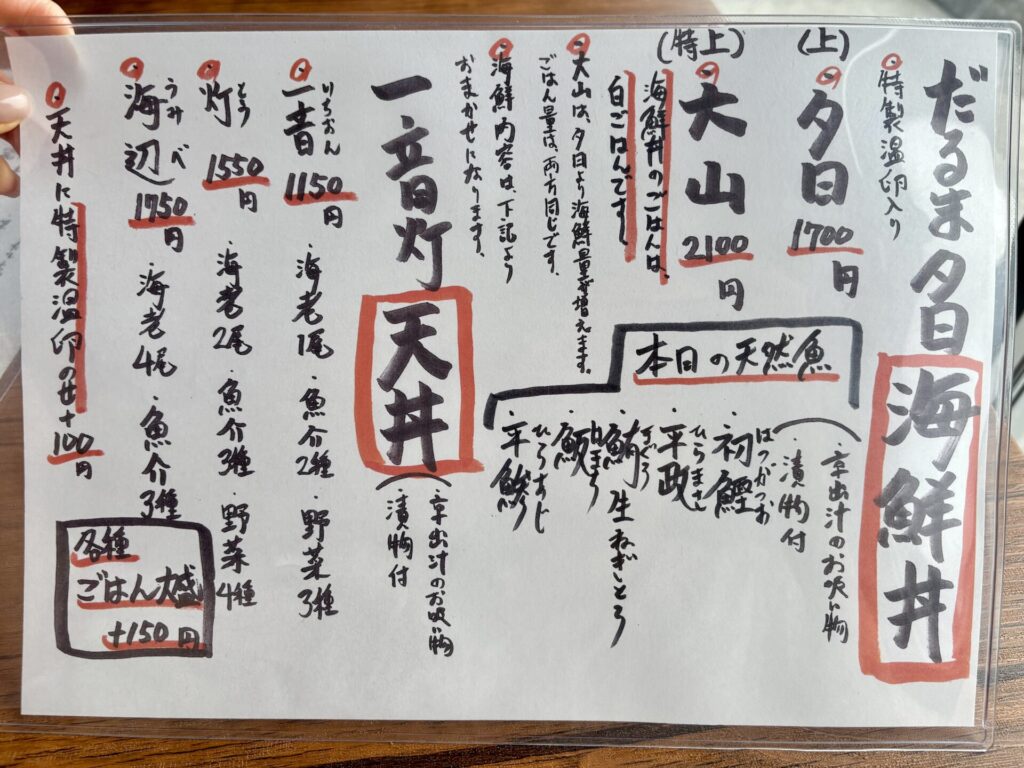 だるま夕日海鮮丼
・京出汁のお吸い物
・漬物付
・特製温卵入り
(上)
・夕日
1700円
(特上)
・大山
2100円
海鮮丼のごはんは、
白ごはんです。
・大山は、夕日より海鮮量が増えます。
ごはん量は、両方同じです。
・海鮮内容は、下記より
おまかせになります。
本日の天然魚
・初鰹
はつがつお
・平政
ひらまさ
・鮪生ねぎとろ
まぐろ
・平鯵
ひらあじ
一音灯天丼
・京出汁のお吸い物
・漬物付
・一音
いちおん
1150円
・海老1尾
・魚介2種
・野菜3種
・灯
とう
1550円
・海老2尾
・魚介3種
・野菜4種
・海辺
うみべ
1750円
・海老4尾
・魚介3種
・天丼に特製温卵のせ+100円
各種
ごはん大盛
+150円